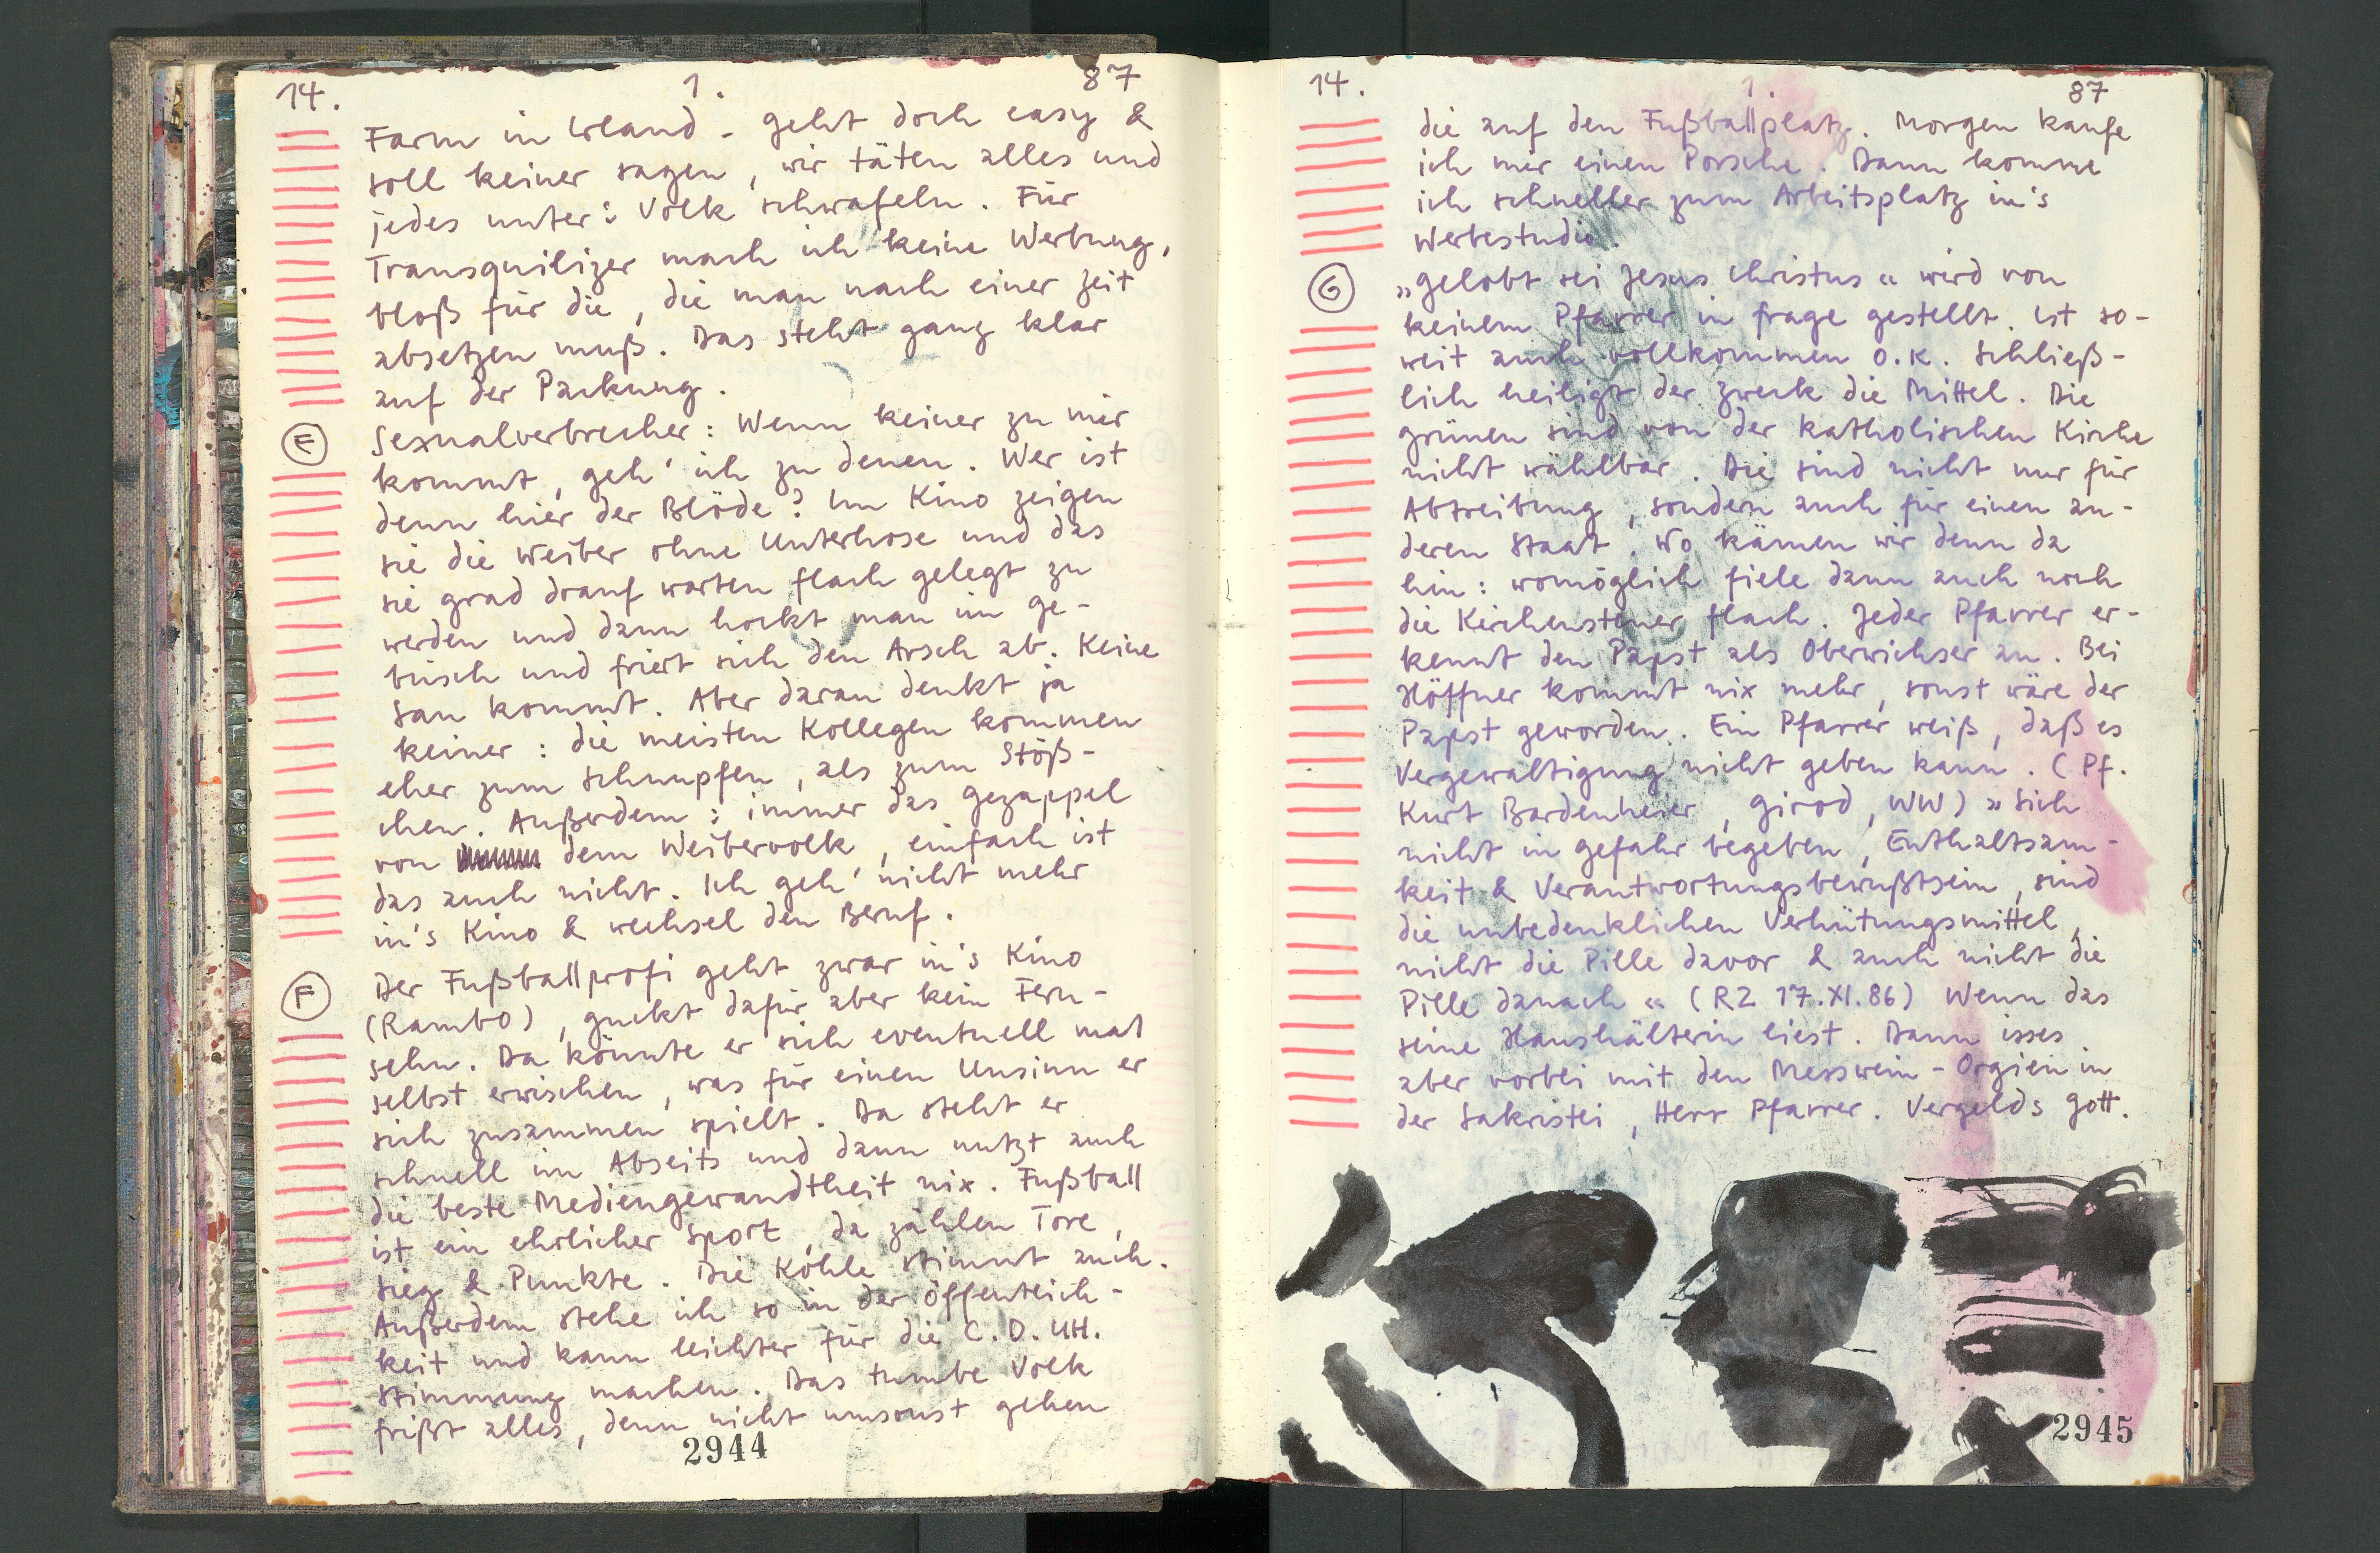 14. 1. 87
Farm in Irland - geht doch easy &
soll keiner sagen, wir täten alles und
jedes unter's Volk schwafeln. Für
Transquilizer mach ich keine Werbung,
bloß für die, die man nach einer Zeit
absetzen muß. Das steht ganz klar
auf der Packung.
E Sexualverbrecher: Wenn keiner zu mir
kommt, geh' ich zu denen. Wer ist
denn hier der Blöde? Im Kino zeigen
sie die Weiber ohne Unterhose und das
sie grad drauf warten flach gelegt zu
werden und dann hockt man im Ge-
büsch und friert sich den Arsch ab. Keine
Sau kommt. Aber daran denkt ja
keiner: die meisten Kollegen kommen
eher zum Schnupfen, als zum Stöß-
chen. Außerdem: immer das Gezappel
von dem Weibervolk, einfach ist
das auch nicht. Ich geh' nicht mehr
in's Kino & wechsel den Beruf.
F Der Fußballprofi geht zwar in's Kino
(Rambo), guckt dafür aber kein Fern-
sehn. Da könnte er sich eventuell mal
selbst erwischen, was für einen Unsinn er
sich zusammen spielt. Da steht er
schnell im Abseits und dann nutzt auch
die beste Mediengewandtheit nix. Fußball
ist ein ehrlicher Sport, da zählen Tore,
Sieg & Punkte. Die Kohle stimmt auch.
Außerdem stehe ich so in der Öffentlich-
keit und kann leichter für die C.D.UH.
Stimmung machen. Das tumbe Volk
frißt alles, denn nicht umsonst gehen
2944
14. 1. 87
die auf den Fußballplatz. Morgen kaufe
ich mer einen Porsche. Dann komme
ich schneller zum Arbeitsplatz in's
Werbestudio.
G »Gelobt sei Jesus Christus« wird von
keinem Pfarrer in frage gestellt. Ist so-
weit auch vollkommen O.K. Schließ-
lich heiligt der Zweck die Mittel. Die
Grünen sind von der katholischen Kirche
nicht wählbar. Die sind nicht nur für
Abtreibung, sondern auch für einen an-
deren Staat. Wo kämen wir denn da
hin: womöglich fiele dann auch noch
die Kirchensteuer flach. Jeder Pfarrer er-
kennt den Papst als Oberwichser an. Bei
Höffner kommt nix mehr, sonst wäre der
Papst geworden. Ein Pfarrer weiß, daß es
Vergewaltigung nicht geben kann. (Pf.
Kurt Bardenheier, Girod, WW) »Sich
nicht in Gefahr begeben, Enthaltsam-
keit & Verantwortungsbewußtsein, sind
die unbedenklichen Verhütungsmittel,
nicht die Pille davor & auch nicht die
Pille danach« (RZ 17.XI.86) Wenn das
seine Haushälterin liest. Dann isses
aber vorbei mit den Messwein-Orgien in
der Sakristei, Herr Pfarrer. Vergelds Gott.
2945